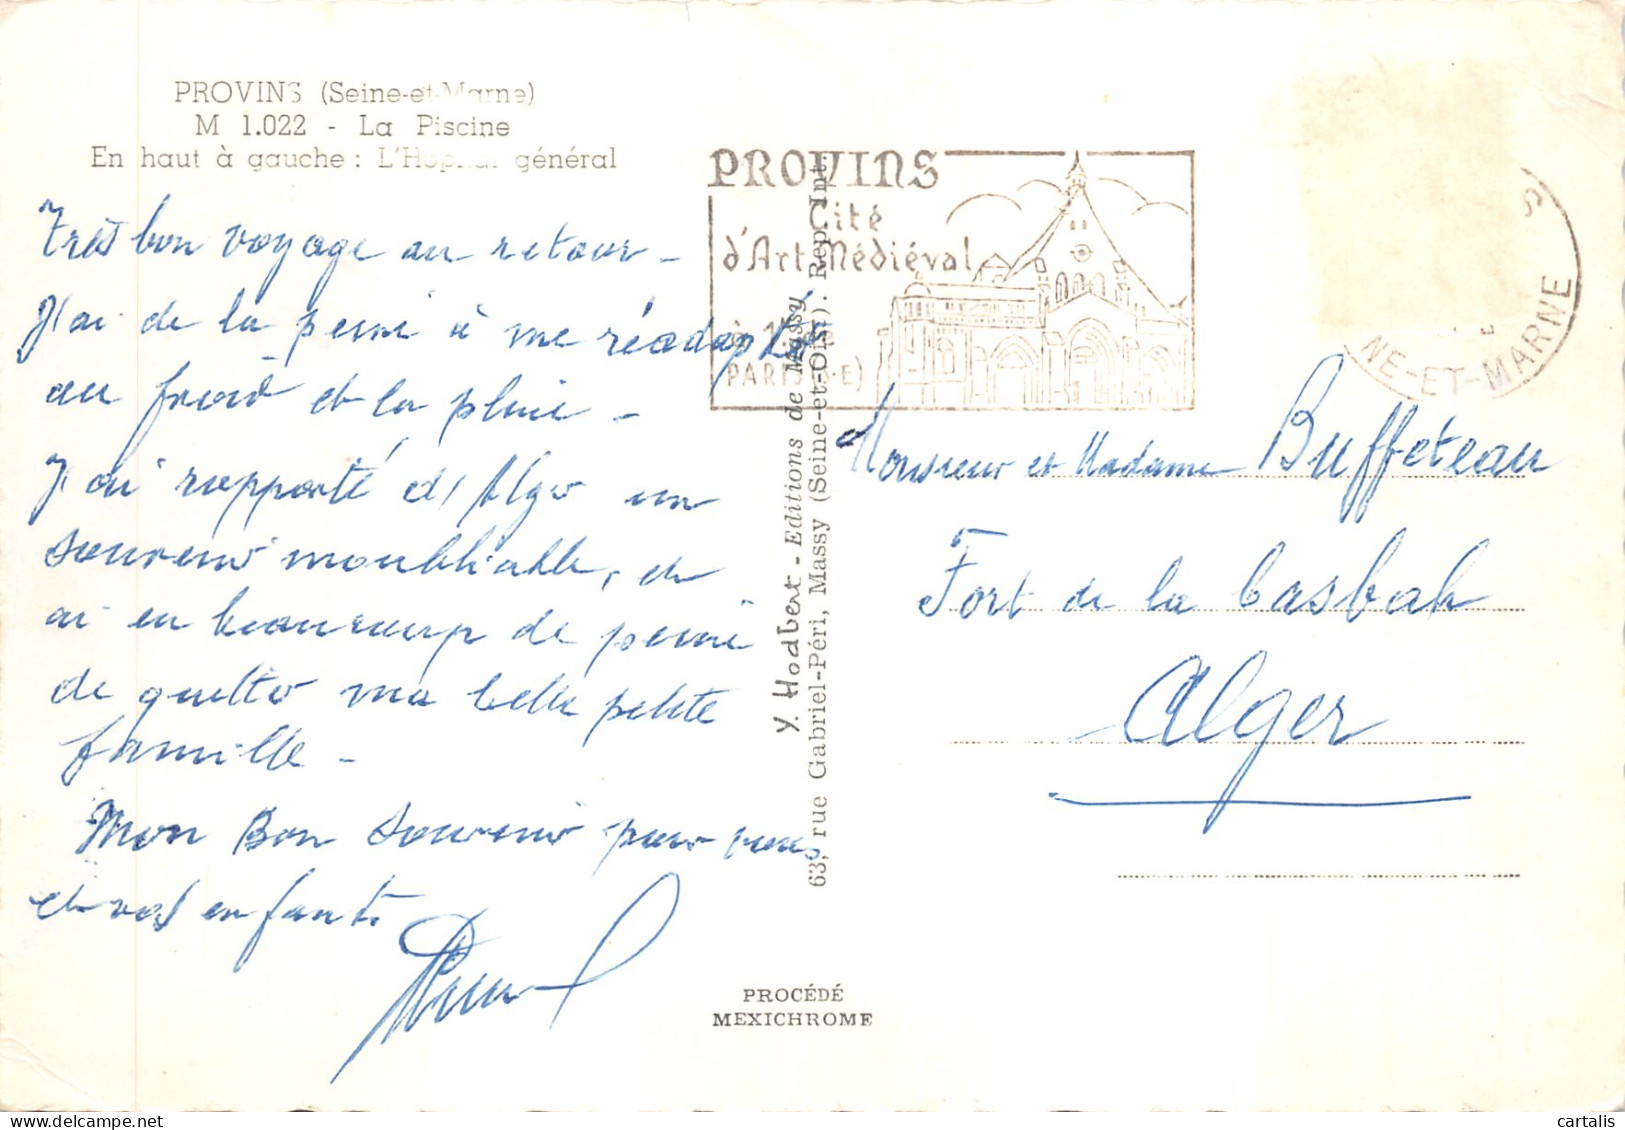 PROVINS (Seine-et-Marne)
M 1.022 - La Piscine
En haut à gauche : L'Hopital général
Très bon voyage au retour -
J'ai de la peine à me réadapter
au froid et la pluie -
J'ai rapporté d'Alger un
souvenir inoubliable, et
ai eu beaucoup de peine
de quitter ma belle petite
famille -
Mon Bon souvenir pour vous
et vos enfants
PROVINS
Cité
d'Art Médiéval
PARIS
S
NE-ET-MARNE
Y. Hodbert - Editions de Massy
63, rue Gabriel-Péri, Massy (Seine-et-Oise). Rep. Int.
Monsieur et Madame Buffeteau
Fort de la Casbah
Alger
PROCÉDÉ
MEXICHROME
cartalis.com